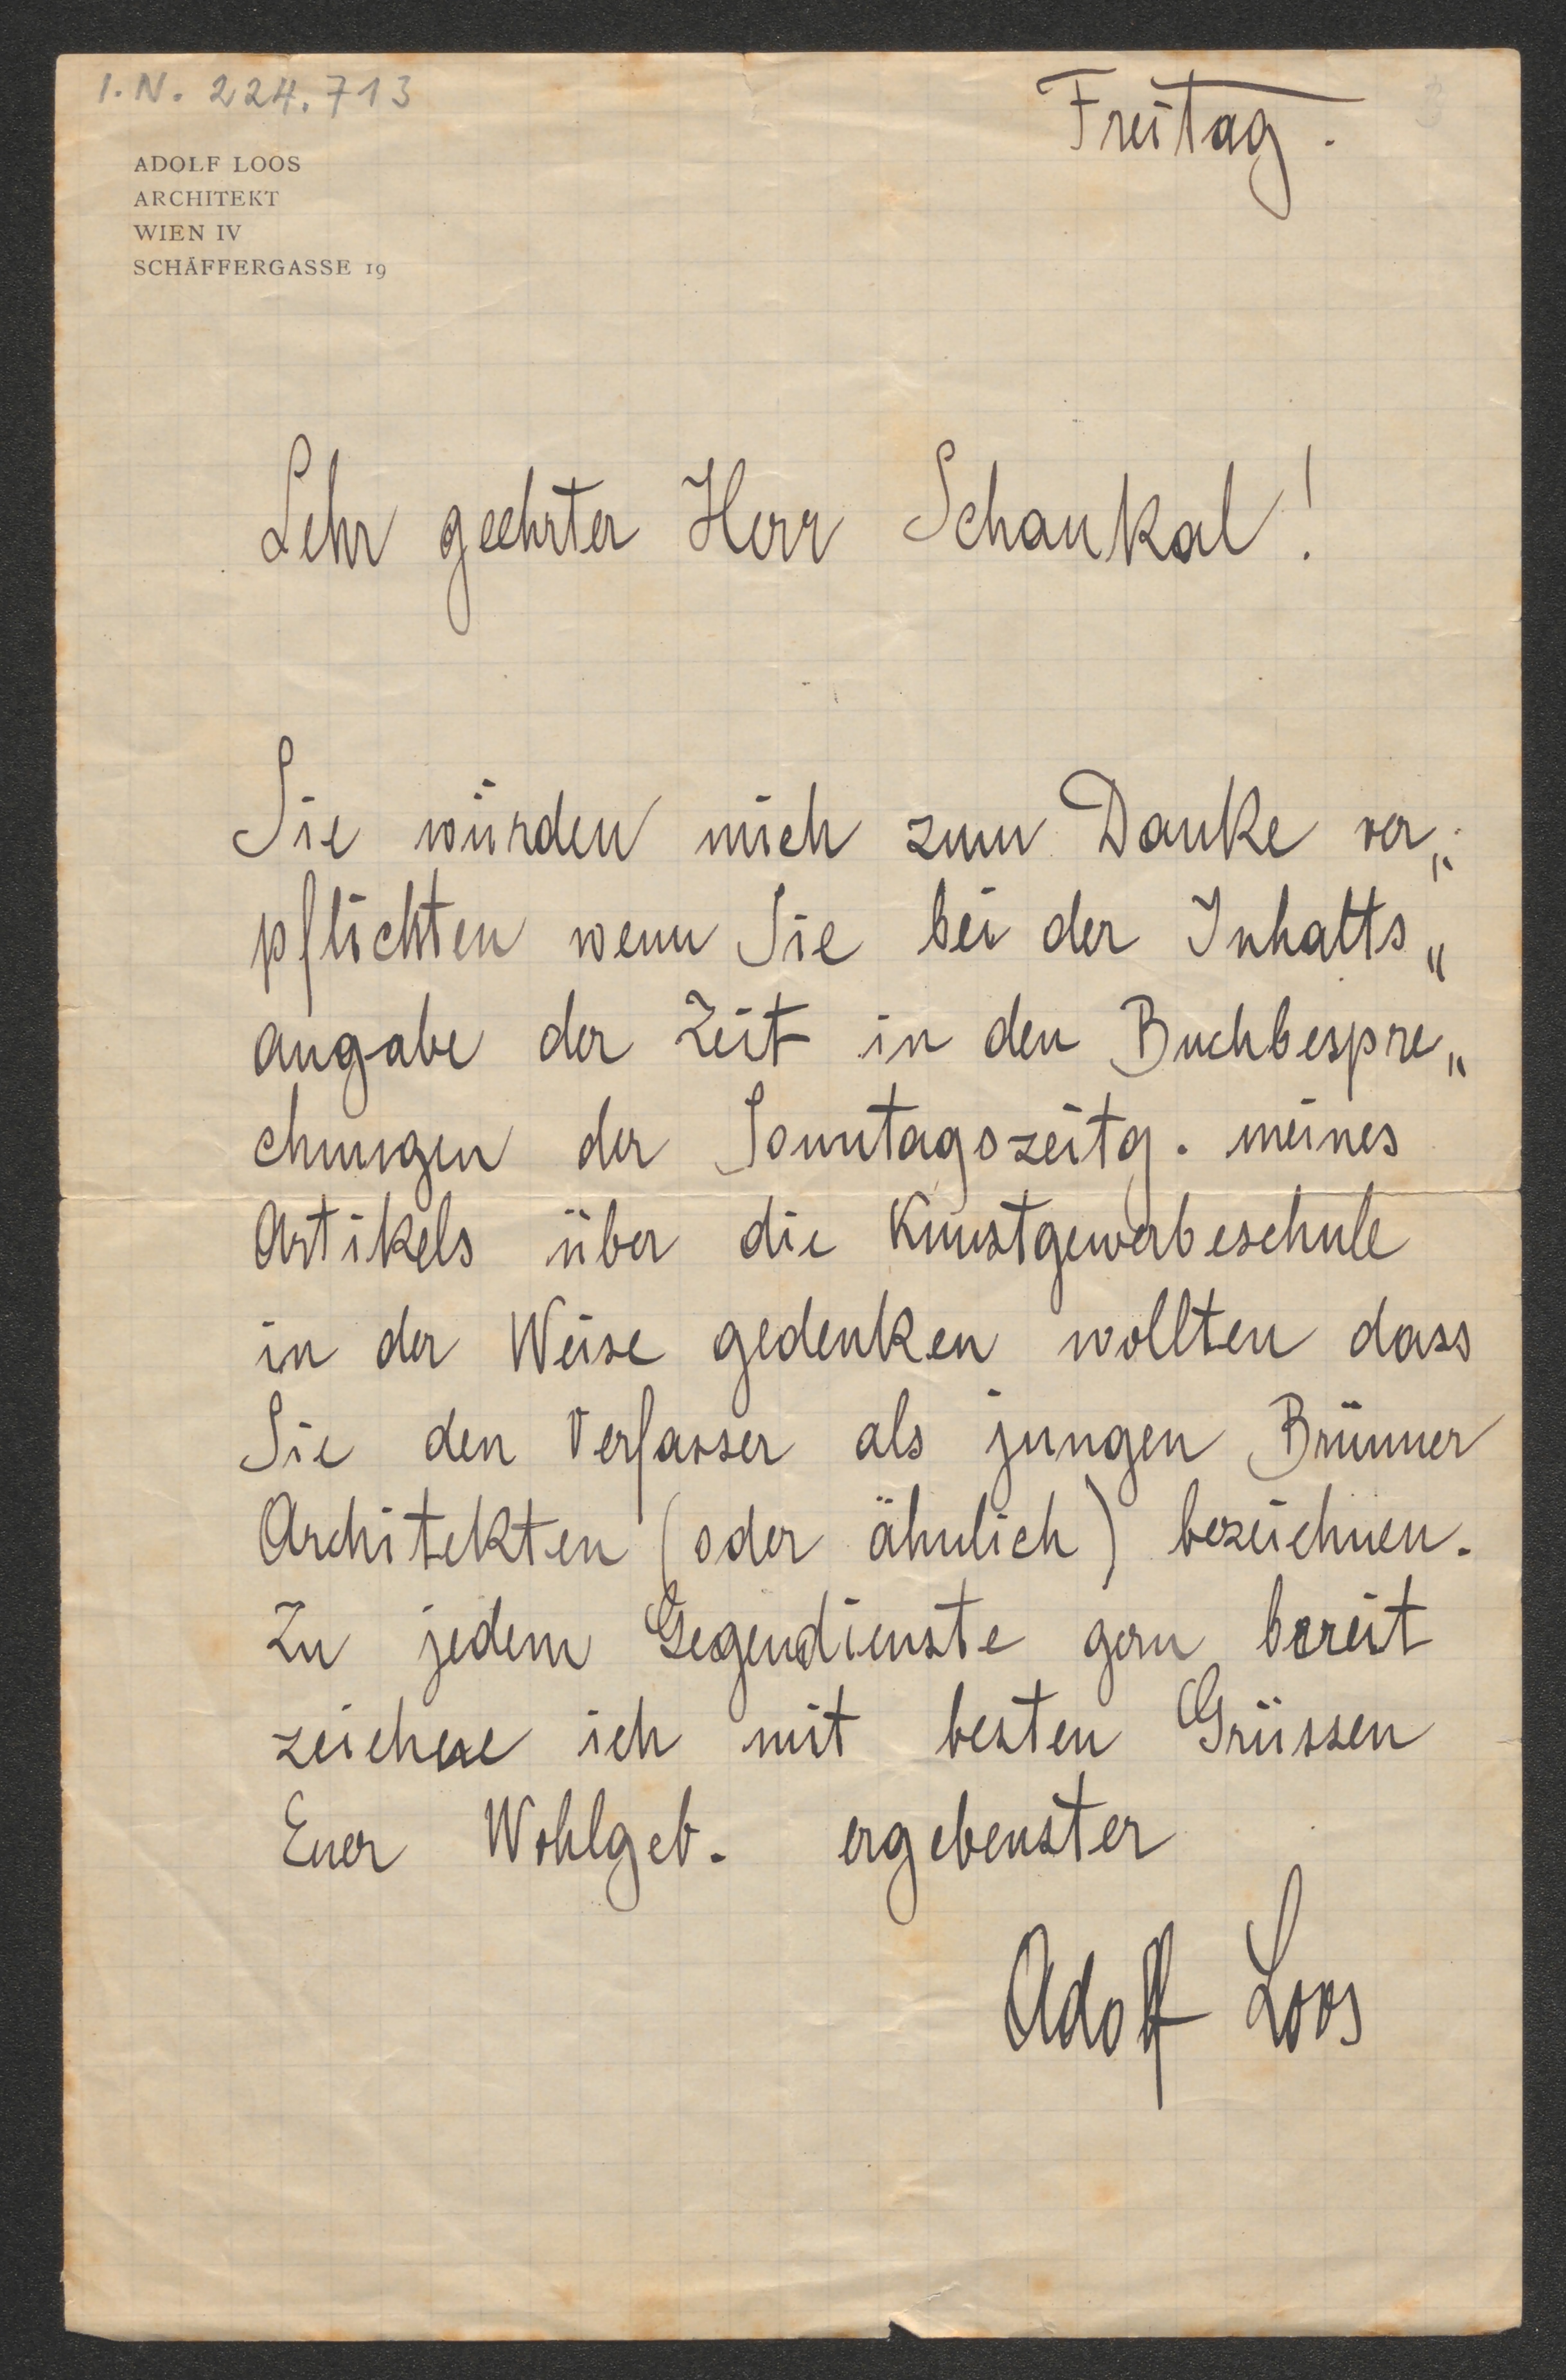 I.N. 224.713
Freitag.
ADOLF LOOS
ARCHITEKT
WIEN IV
SCHÄFFERGASSE 19
Sehr geehrter Herr Schaukal!
Sie würden mich zum Danke ver„
pflichten wenn Sie bei der Inhalts„
angabe der Zeit in den Buchbespre„
chungen der Sonntagszeitg. meines
Artikels über die Kunstgewerbeschule
in der Weise gedenken wollten dass
Sie den Verfasser als jungen Brünner
Architekten (oder ähnlich) bezeichnen.
Zu jedem Gegendienste gern bereit
zeichne ich mit besten Grüssen
Euer Wohlgeb. ergebenster
Adolf Loos